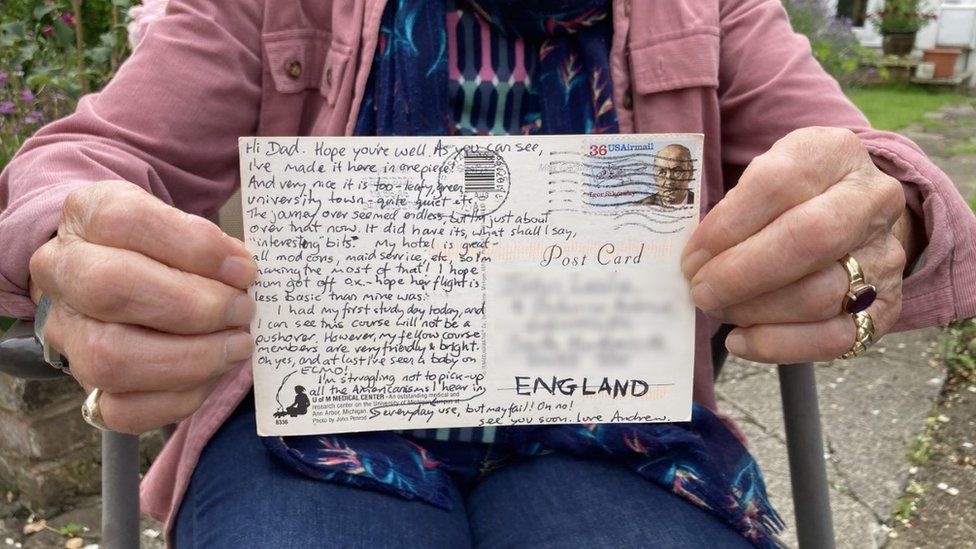 Hi Dad. Hope you're well. As you can see,
I've made it here in one piece!
And very nice it is too - leafy, green
university town - quite quiet etc.
The journey over seemed endless, but I'm just about
over that now. It did have its, what shall I say,
"interesting bits". My hotel is great -
all mod cons, maid service, etc, so I'm
making the most of that! I hope
mum got off o.k. - hope her flight is
less basic than mine was.
I had my first study day today, and
I can see this course will not be a
pushover. However, my fellow course
members are very friendly & bright.
Oh yes, and at last I've seen a baby on
ECMO!
I'm struggling not to pick-up
all the Americanisms I hear in
everyday use, but may fail! Oh no!
See you soon. Love Andrew.
36 USAirmail
Igor Sikorsky
Post Card
ENGLAND
U of M MEDICAL CENTER - An outstanding medical and
research center on the University of Michigan campus at
Ann Arbor, Michigan.
Photo by John Penrod
8336